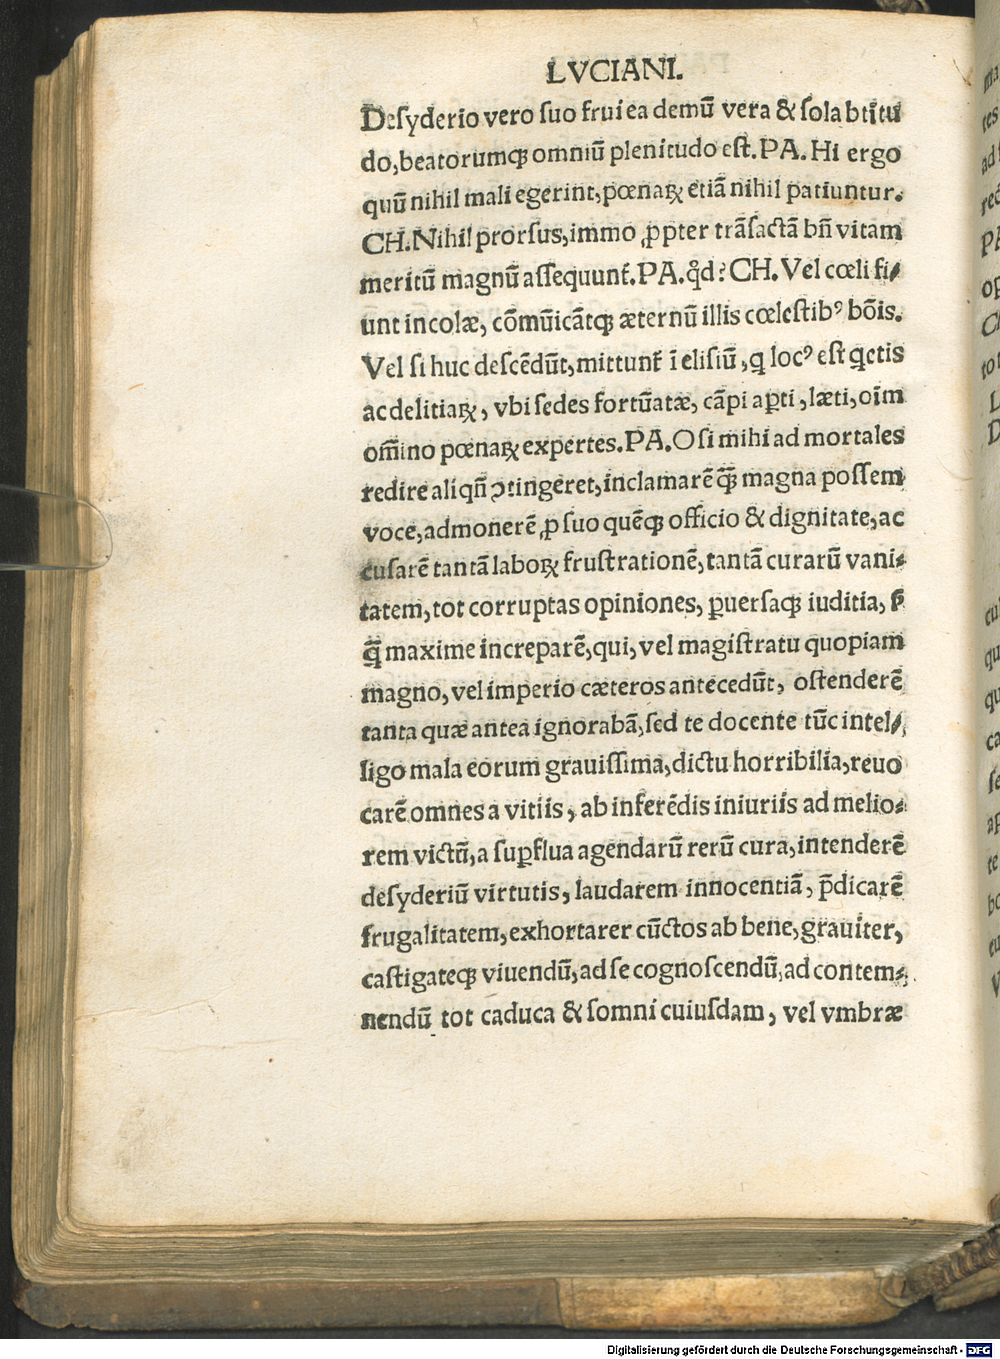 LVCIANI.
Deſyderio vero ſuo frui ea demū vera & ſola btĩtu
do, beatorumqꝫ omniū plenitudo eſt. PA. Hi ergo
quū nihil mali egerint, pœnaꝝ etiā nihil patiuntur.
CH. Nihil prorſus, immo ꝓpter trāſactā bñ vitam
meritū magnū aſſequunt᷑. PA. qd̛? CH. Vel cœli fi⸗
unt incolæ, cōmūicātqꝫ æternū illis cœleſtibꝰ bōis.
Vel ſi huc deſcēdūt, mittunt᷑ ī eliſiū, q locꝰ eſt qͥetis
ac delitiaꝝ, vbi ſedes fortūatæ, cāpi aꝑti, læti, oīm
om̄ino pœnaꝝ expertes. PA. O ſi mihi ad mortales
redire aliqñ ↄtingeret, inclamarē qͣꝫ magna poſſem
voce, admonerē ꝓ ſuo quēqꝫ officio & dignitate, ac
cuſarē tantā laboꝝ fruſtrationē, tantā curarū vani⸗
tatem, tot corruptas opiniones, ꝑuerſaqꝫ iuditia, ſꝫ
qͣꝫ maxime increparē, qui, vel magiſtratu quopiam
magno, vel imperio cæteros antecedūt, oſtenderē
tanta quæ antea ignorabā, ſed te docente tūc intel⸗
ligo mala eorum grauiſſima, dictu horribilia, reuo
carē omnes a vitiis, ab inferēdis iniuriis ad melio⸗
rem victū, a ſuꝑflua agendarū rerū cura, intenderē
deſyderiū virtutis, laudarem innocentiā, p̄dicarē
frugalitatem, exhortarer cūctos ab bene, grauiter,
caſtigateqꝫ viuendū, ad ſe cognoſcendū, ad contem⸗
nendū tot caduca & ſomni cuiuſdam, vel vmbræ
Digitalisierung gefördert durch die Deutsche Forschungsgemeinschaft - DFG